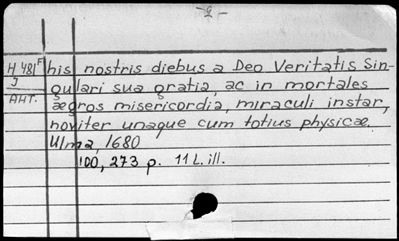 -2-
H 481F his nostris diebus a Deo Veritatis Sin-
J gulari sua gratia, ac in mortales
AHT. ægros misericordia, miraculi instar,
noviter unaque cum totius physicæ.
Ulma, 1680
100, 273 p. 11 L. ill.